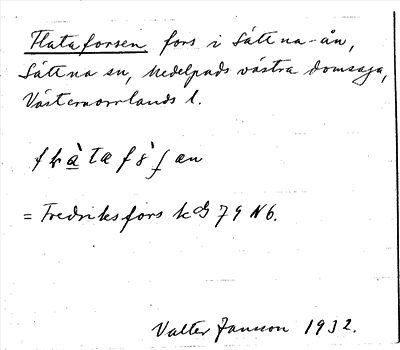 Flataforsen fors i Sättna-ån,
Sättna sn, Medelpads västra domsaga,
Västernorrlands l.
= Fredriksfors kbl 79 N6.
Valter Jansson 1932.